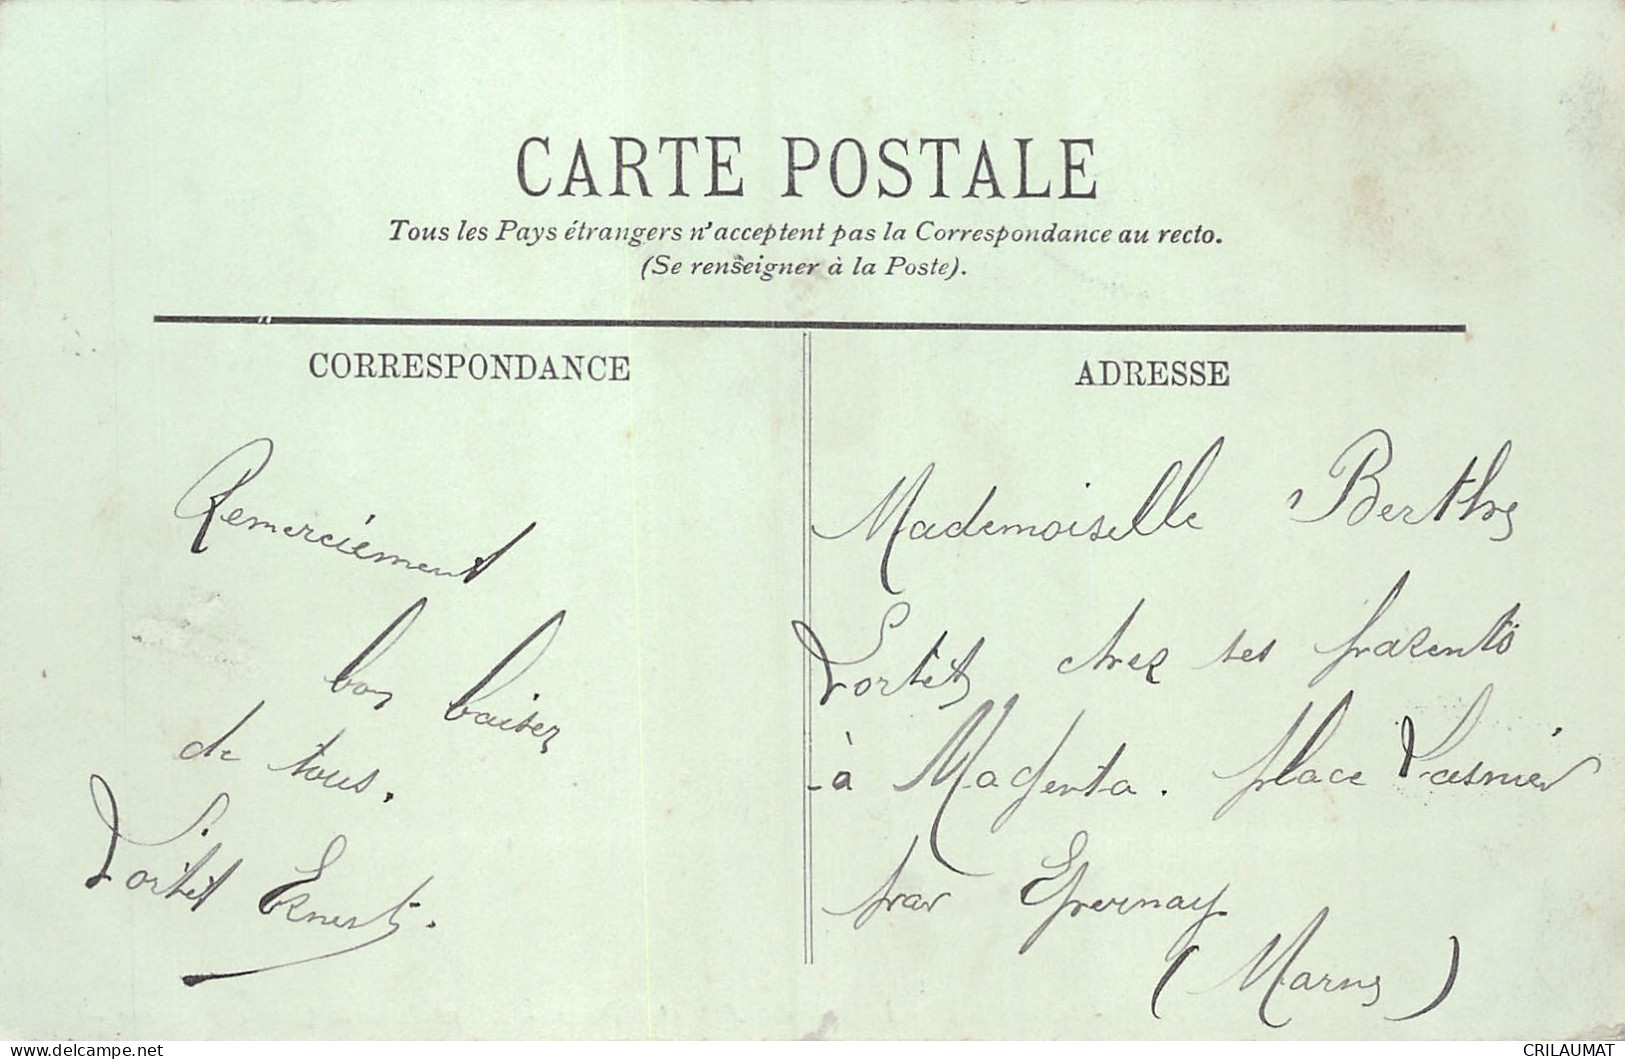 CARTE POSTALE
Tous les Pays étrangers n'acceptent pas la Correspondance au recto.
(Se renseigner à la Poste).
CORRESPONDANCE
Remerciément
bon baiser
de tous.
Lortet Ernest.
ADRESSE
Mademoiselle Berthe
Lortet chez ses parents
à Magenta. place Lasnier
par Epernay
(Marne)
CRILAUMAT